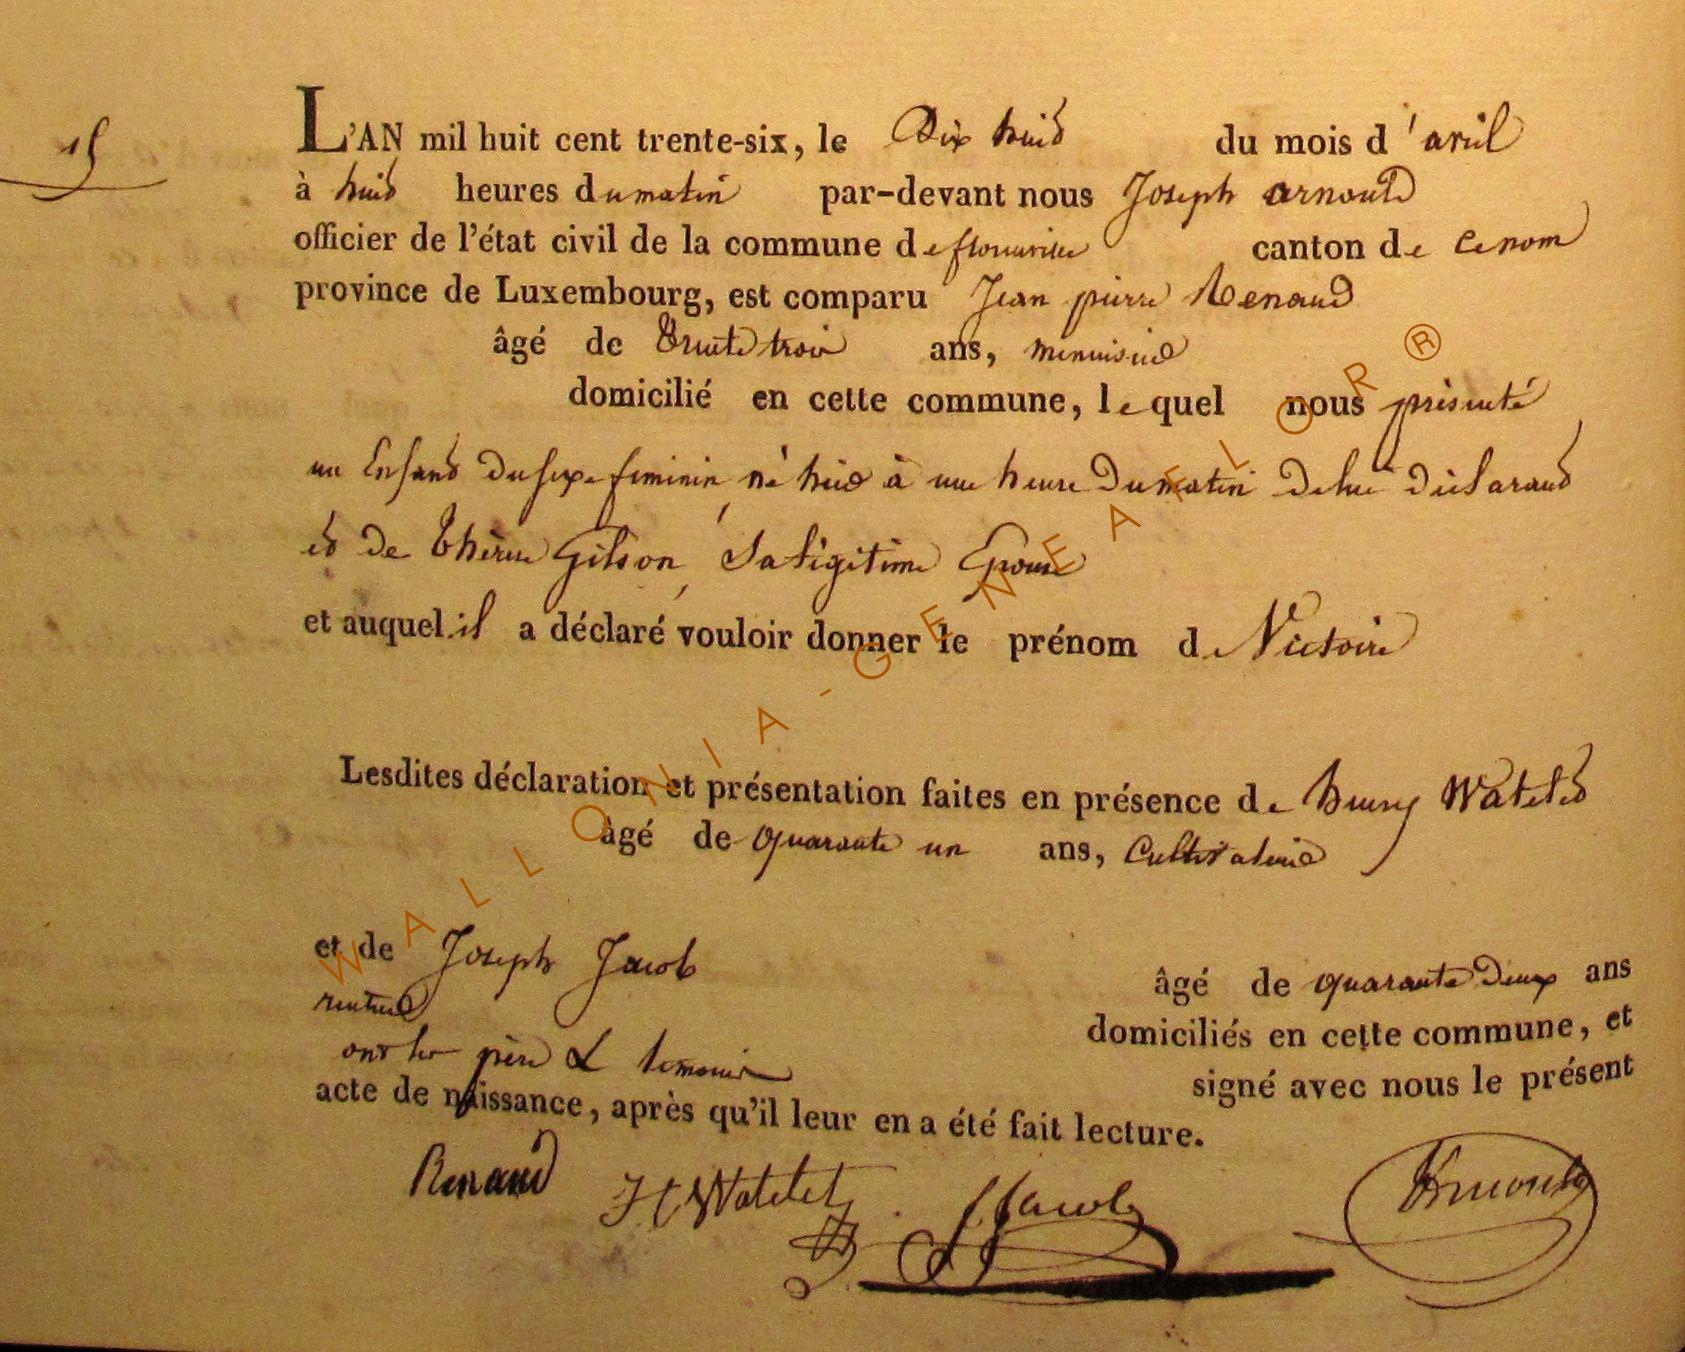 15
L'AN mil huit cent trente-six, le Dix huit du mois d'avril
à huit heures du matin par-devant nous Joseph arnould
officier de l'état civil de la commune de florenville canton de
province de Luxembourg, est comparu Jean pierre Renaud
âgé de trente trois ans, menuisier
domicilié en cette commune, le quel nous présenté
un Enfant du sexe feminin, né hier à une heure du matin de lui déclarant
et de thérese Gilson, Sa légitime Epouse
et auquel il a déclaré vouloir donner le prénom de Victoire
Lesdites déclaration et présentation faites en présence de henry Watelet
âgé de quarante un ans, Cultivateur
et de Joseph Jacob âgé de quarante Deux ans
rentier domiciliés en cette commune, et
ont les père & temoins signé avec nous le présent
acte de naissance, après qu'il leur en a été fait lecture.
Renaud H Watelet J Jacob Arnould
WALLONIA-GENEAFLOR®